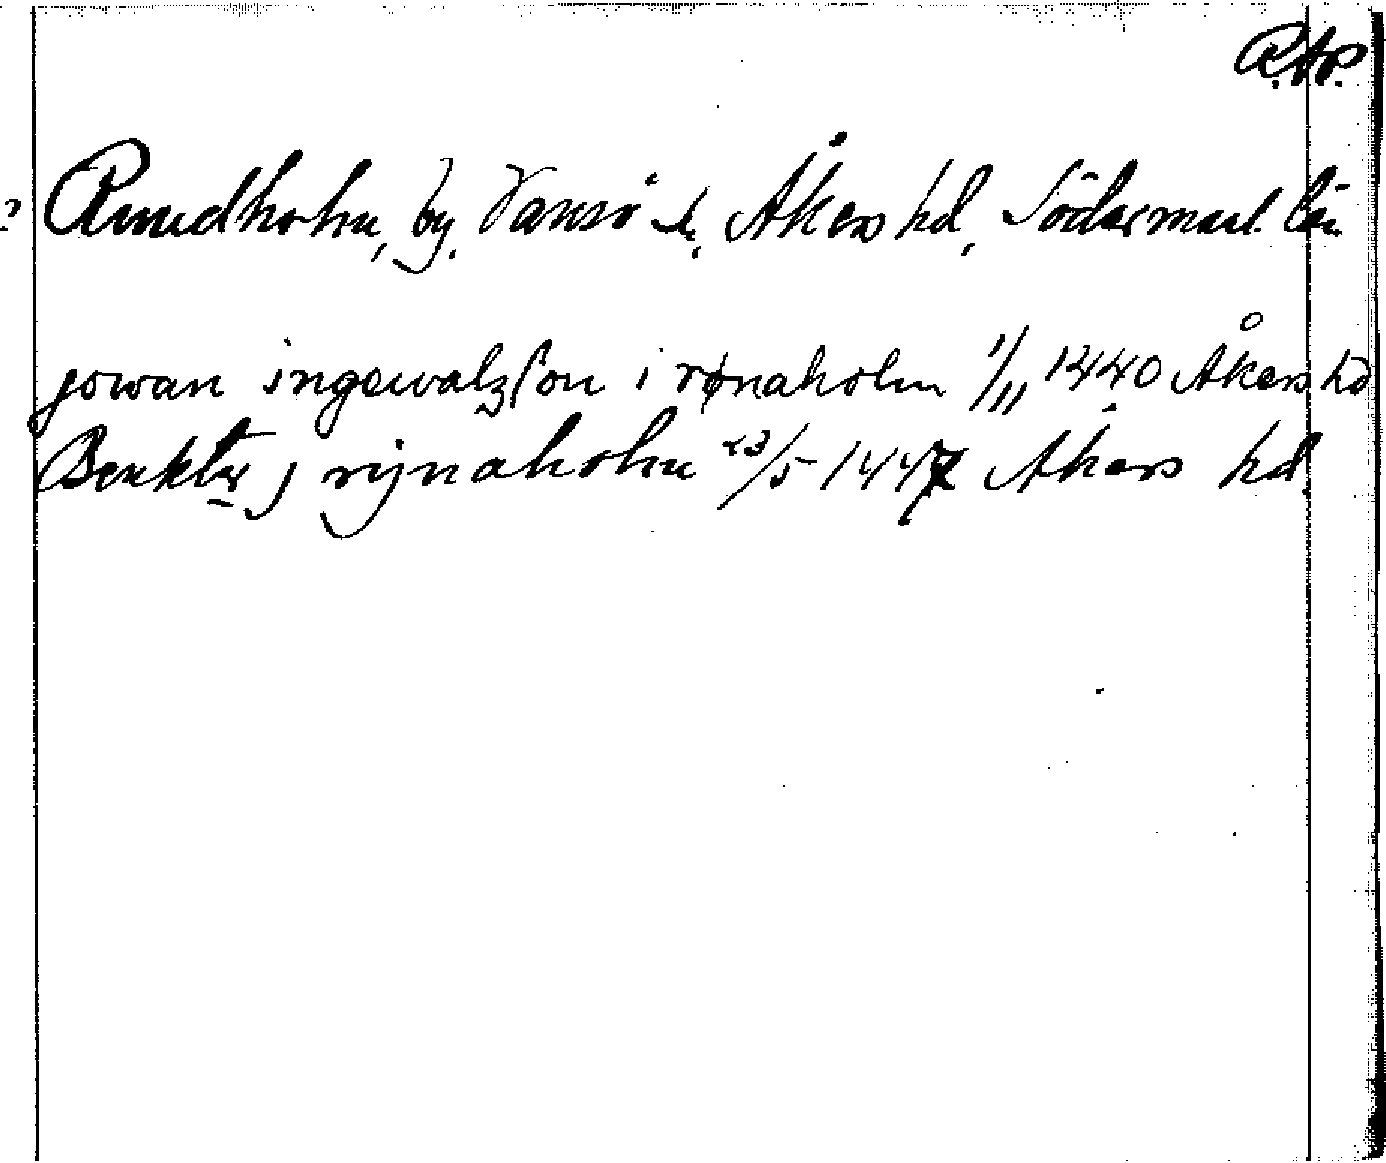 R.A.P.
? Rundholm, by. Vansö s., Åkers hd, Södermanl. län.
jowan ingewalzson i rønaholm 1/11 1440 Åkers hd
Benkter j rijnaholm 23/5 1447 Åkers hd.